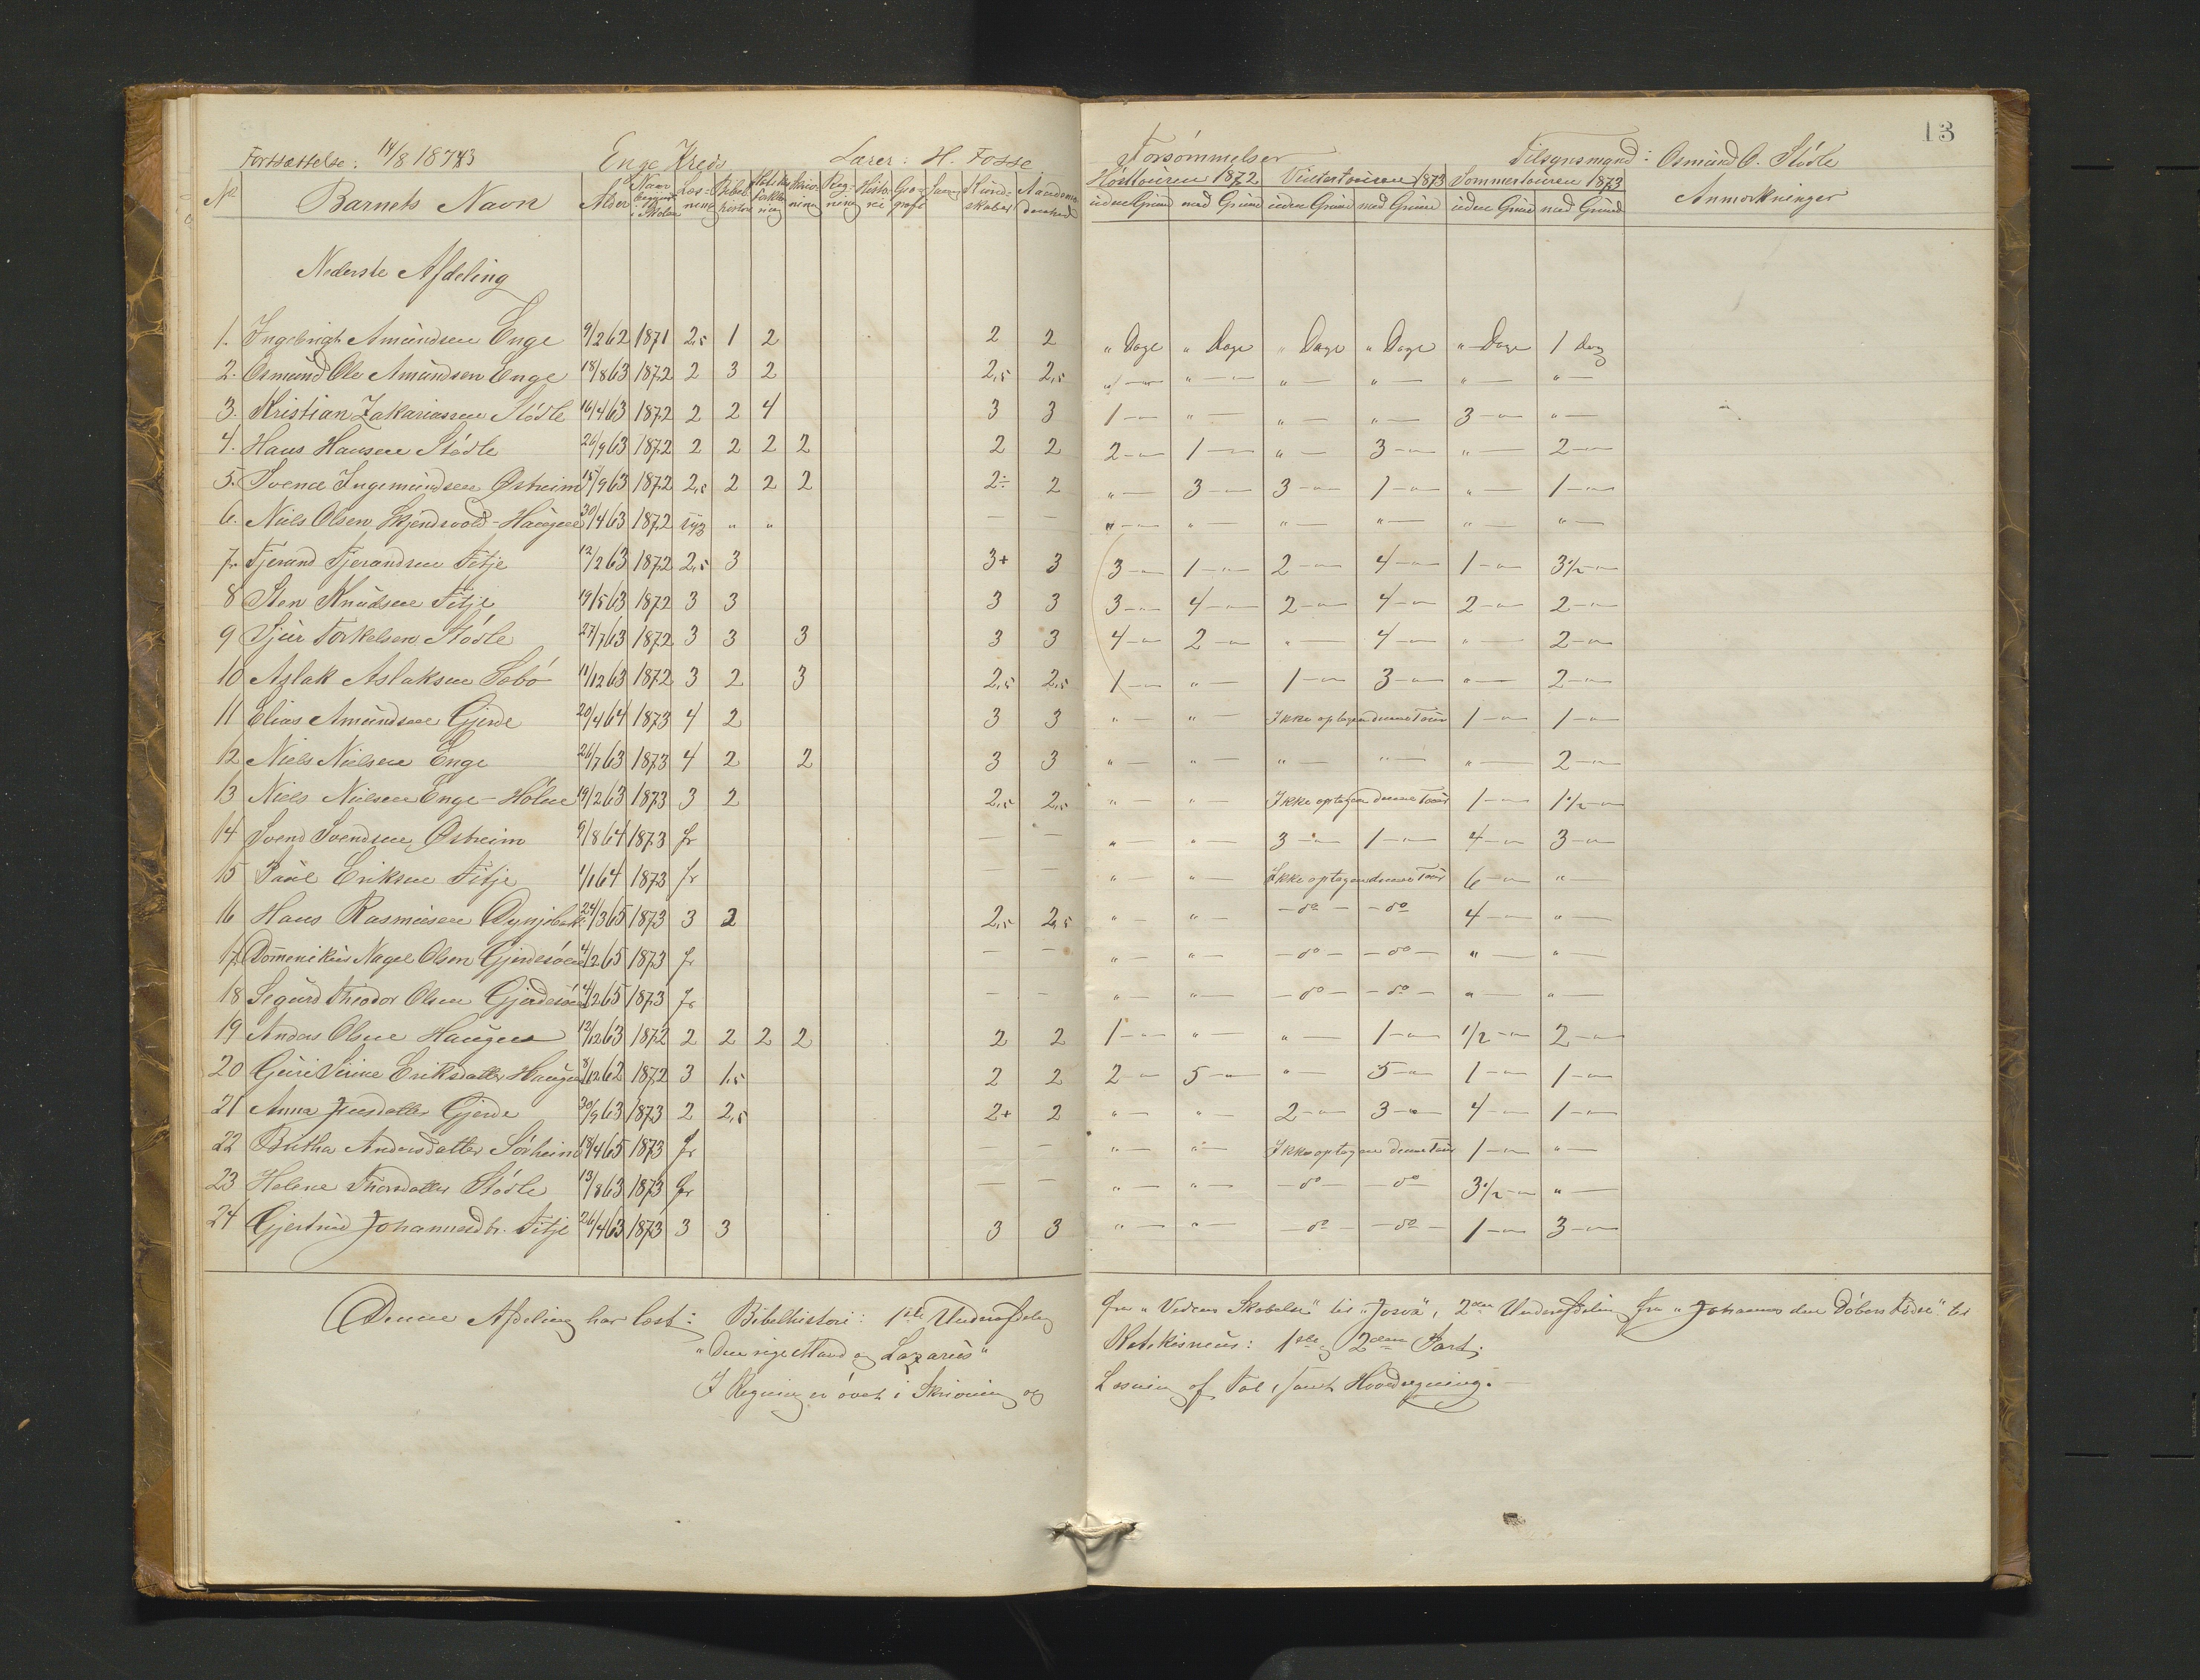 Fortsættelse: 14/8 1873 Enge Kreds Lærer: H. Fosse Forsømmelser Tilsynsmand: Osmund O. Stødle 13
Høsttouren 1872 Vintertouren 1873 Sommertouren 1873
No. Barnets Navn Alder Naar begyndt i Skolen Læs-ning Bibel-historie Skriv-ning Reg-ning Histo-rie Geo-grafi Sang Kund-skaber uden Grund med Grund uden Grund med Grund uden Grund med Grund Anmærkninger
Nederste Afdeling
1. Ingebrigt Amundsen Enge 9/2 62 1871 2,5 1 2 2 2 " Dage " Dage " Dage " Dage " Dage 1 dag
2. Osmund Ole Amundsen Enge 18/8 63 1872 2 3 2 2,5 2,5 " — " — " — " — " — " —
3. Kristian Zakariassen Stødle 16/4 63 1872 2 2 4 3 3 1 — " — " — " — 3 — " —
4. Hans Hansen Stødle 26/9 63 1872 2 2 2 2 2 2 2 — 1 — " — 3 — " — 2 —
5. Svend Ingemundsen Østheim 15/9 63 1872 2,5 2 2 2 2÷ 2 " — 3 — 3 — 1 — " — 1 —
6. Niels Olsen Skjendsvold-Haugen 30/4 63 1872 syg " " — — " — " — " — " — " — " —
7. Tjerand Tjerandsen Fitje 12/2 63 1872 2,5 3 3+ 3 3 — 1 — 2 — 4 — 1 — 3 1/2 —
8 Sten Knudsen Fitje 19/5 63 1872 3 3 3 3 3 — 4 — 2 — 4 — 2 — 2 —
9 Sjur Torkelsen Stødle 27/7 63 1872 3 3 3 3 3 4 — 2 — " — 4 — " — 2 —
10 Aslak Aslaksen Sæbø 11/12 63 1872 3 2 3 2,5 2,5 1 — " — 1 — 3 — " — 2 —
11 Elias Amundsen Gjerde 20/4 64 1873 4 2 3 3 " — " — Ikke optagen denne Tour 1 — 1 —
12 Niels Nielsen Enge 26/7 63 1873 4 2 2 3 3 " — " — " — " — " — 2 —
13 Niels Nielsen Enge-Holm 19/2 63 1873 3 2 2,5 2,5 " — " — Ikke optagen denne Tour 1 — 1 1/2 —
14 Svend Svendsen Østheim 9/8 64 1873 fr — — " — " — 3 — 1 — 4 — 3 —
15 Paul Eriksen Fitje 1/1 64 1873 fr — — " — " — Ikke optagen denne Tour 6 — " —
16 Hans Rasmussen 24/3 65 1873 3 2 2,5 2,5 " — " — — do — — do 4 — " —
17. Domenikus Nagel Olsen Gjerdesøen 4/2 65 1873 fr — — " — " — — do — — do — " — " —
18 Sigurd Theodor Olsen Gjerdesøen 4/2 65 1873 fr — — " — " — — do — — do — " — " —
19 Anders Olsen Haugen 12/12 63 1872 2 2 2 2 2 2 1 — " — " — 1 — 1/2 — 2 —
20 Guri Serine Eriksdatter Haugen 8/12 62 1872 3 1,5 2 2 2 — 5 — " — 5 — 1 — 1 —
21 Anna Jensdatter Gjerde 30/9 63 1873 2 2,5 2+ 2 " — " — 2 — 3 — 4 — 1 —
22 Britha Andersdatter Sørheim 18/4 65 1873 fr — — " — " — Ikke optagen denne Tour 1 — " —
23 Helene Thorsdatter Stødle 13/8 63 1873 fr — — " — " — — do — — do 3 1/2 — " —
24 Gjertrud Johannesdtr. Fitje 26/4 63 1873 3 3 3 3 " — " — — do — — do — 1 — 3 —
Denne Afdeling har læst: Bibelhistorie: 1ste Underafdeling fra "Verdens Skabelse" til "Josva", 2den Underafdeling fra "Johannes den Døbers Fødsel" til
"Den rige Mand og Lazarus" Katekismus: 1ste og 2den Part.
I Regning er øvet i Skrivning og Læsning af Tal, samt Hovedregning.